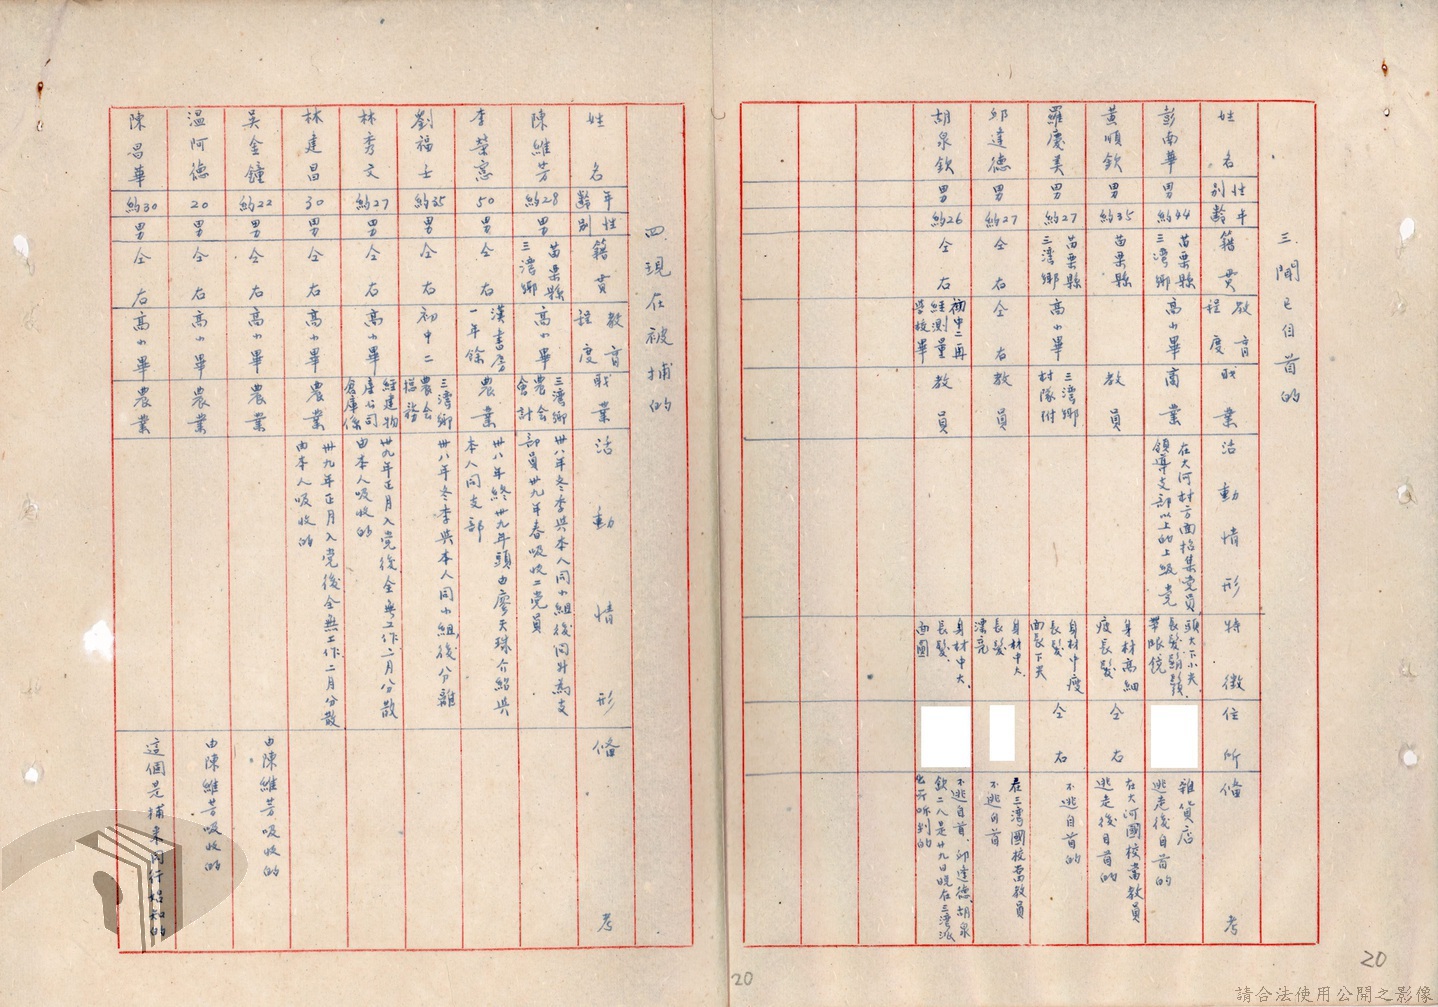 三、聞已自首的
姓名 性別 年齡 籍貫 教育程度 職業 活動情形 特徵 住所 備考
彭南華 男 約44 苗栗縣三灣鄉 高小畢 商業 在大河村方面招集党員領導支部以上的上級党 頭大下小尖、長髮鬍鬚帶眼鏡 雜貨店 逃走後自首的
黃順欽 男 約35 苗栗縣 教員 身材高細瘦長髮 仝右 在大河國校當教員逃走後自首的
羅慶美 男 約27 苗栗縣三灣鄉 高小畢 三灣鄉村隊附 身材中瘦長髮面長下尖 仝右 不逃自首的
邱達德 男 約27 仝右 仝右 教員 身材中大、長髮漂亮 在三灣國校當教員不逃自首
胡泉欽 男 約26 仝右 初中二再經測量學校畢 教員 身材中大、長髮、面圓 不逃自首、邱達德、胡泉欽二人是廿九日晚在三灣派出所听到的
四、現在被捕的
姓名 年齡 性別 籍貫 教育程度 職業 活動情形 備考
陳維芳 約28 男 苗栗縣三灣鄉 高小畢 三灣鄉農会會計 卅八年冬季與本人同小組後同升為支部員卅九年春吸收二党員
李榮憲 50 男 仝右 漢書房一年餘 農業 卅八年終卅九年頭由廖天珠介紹與本人同支部
劉福士 約35 男 仝右 初中二 三灣鄉農会總務 卅八年冬季與本人同小組、後分離
林秀文 約27 男 仝右 高小畢 經建物產公司倉庫係 卅九年正月入党後全無工作二月分散由本人吸收的
林建昌 30 男 仝右 高小畢 農業 卅九年正月入党後全無工作二月分散由本人吸收的
吳金鐘 約22 男 仝右 高小畢 農業 由陳維芳吸收的
温阿德 20 男 仝右 高小畢 農業 由陳維芳吸收的
陳昌華 約30 男 仝右 高小畢 農業 這個是捕來同行始知的
20
20
請合法使用公開之影像